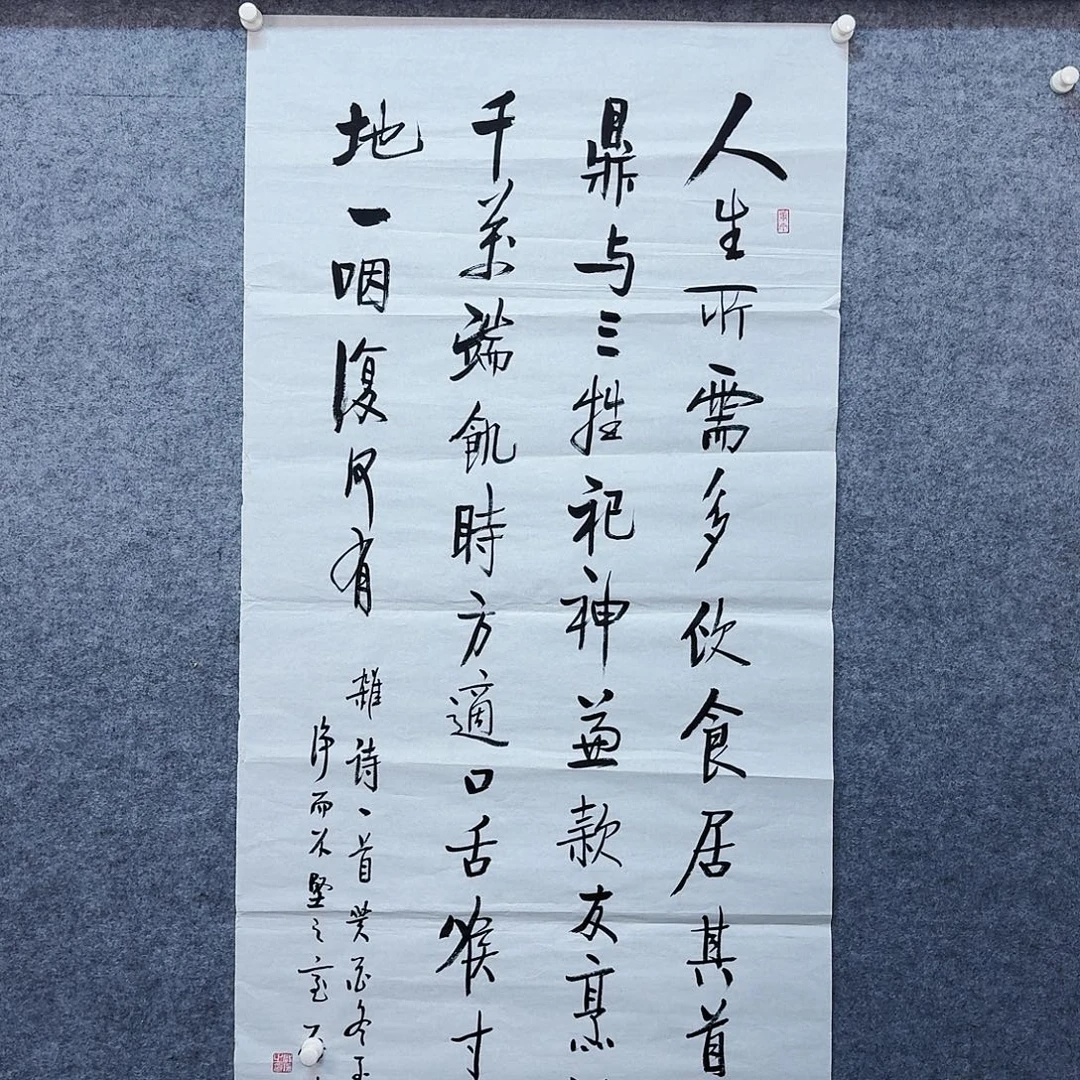 人生所需多飲食居其首
鼎与三牲祀神兼款友烹
千萬端飢時方適口舌喉寸
地一咽復何有
雜詩一首癸酉冬
净而不堅之室